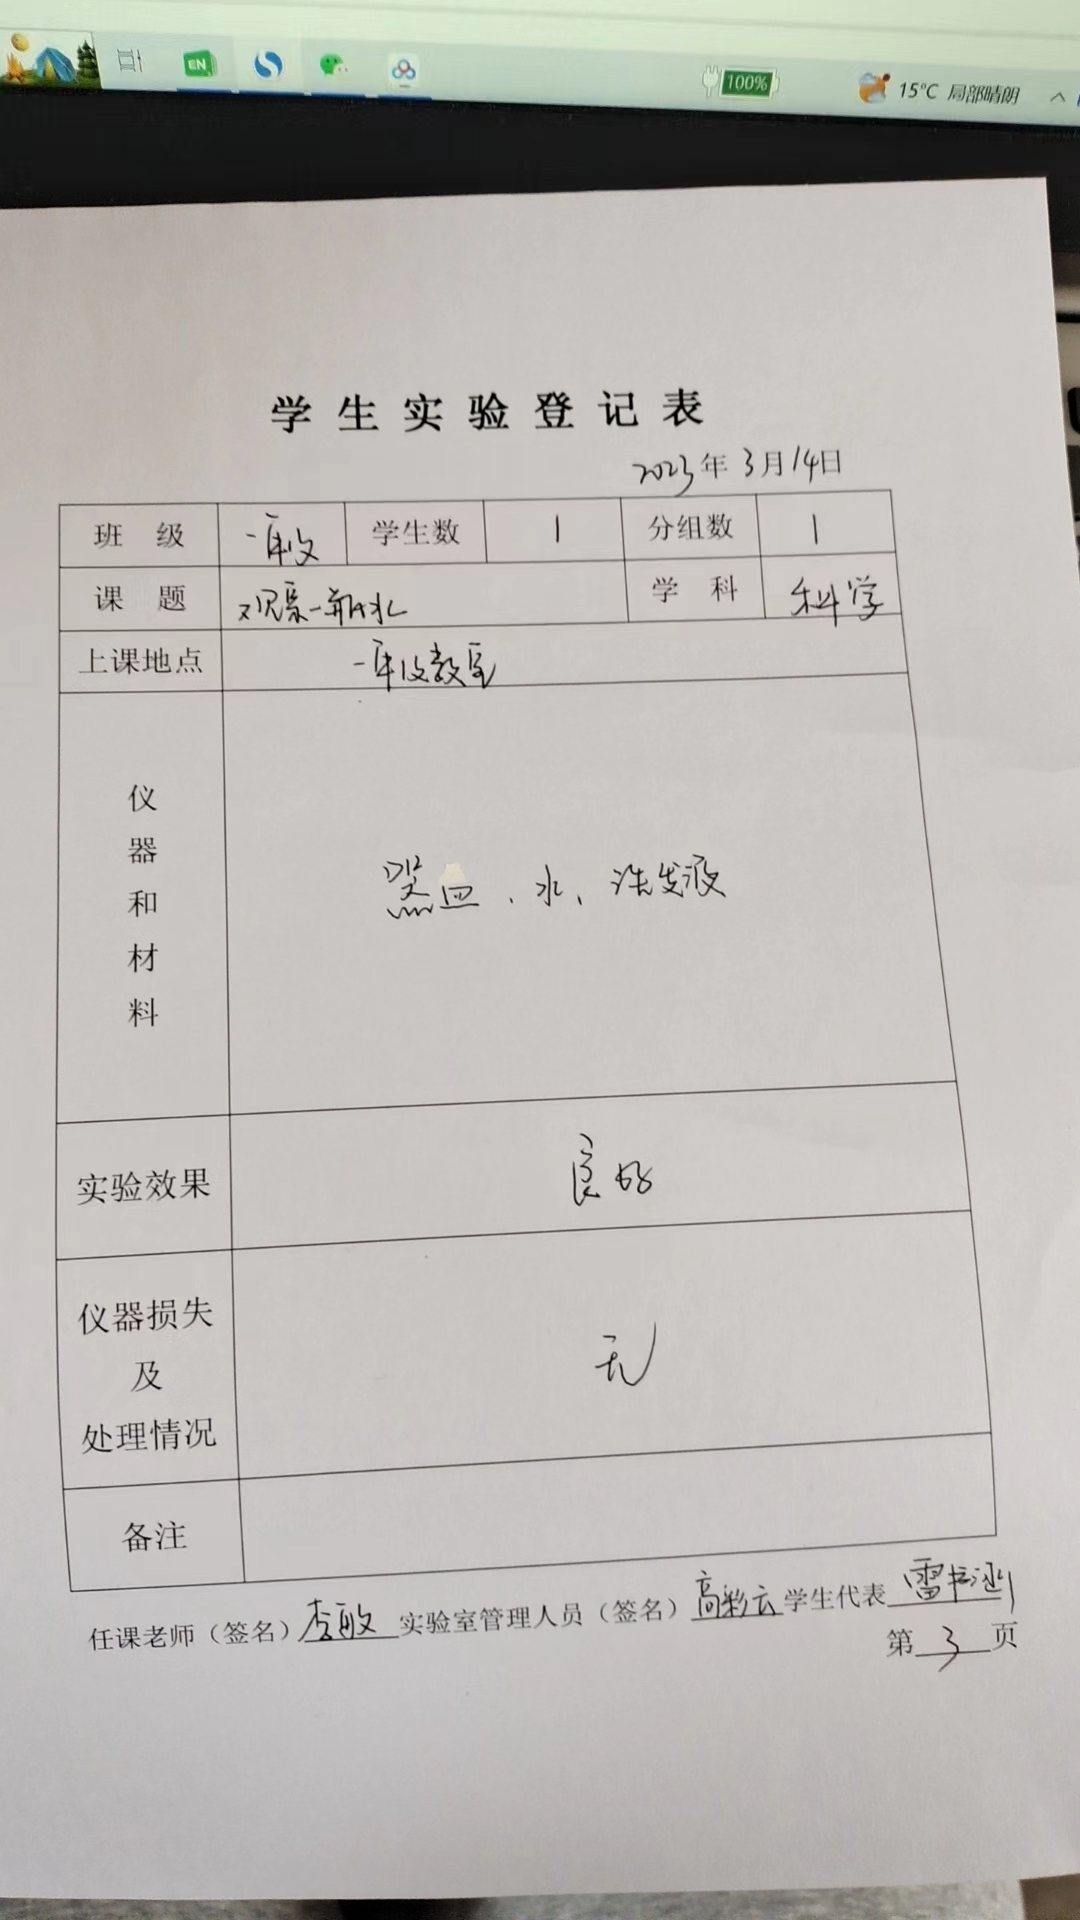 EN 100% 15°C 局部晴朗
学生实验登记表
2023年3月14日
班级 一年级 学生数 1 分组数 1
课题 观察一瓶水 学科 科学
上课地点 一年级教室
仪器和材料 器皿、水、洗发液
实验效果 良好
仪器损失及处理情况 无
备注
任课老师（签名）李敏 实验室管理人员（签名）高彩云 学生代表 雷书涵
第3页